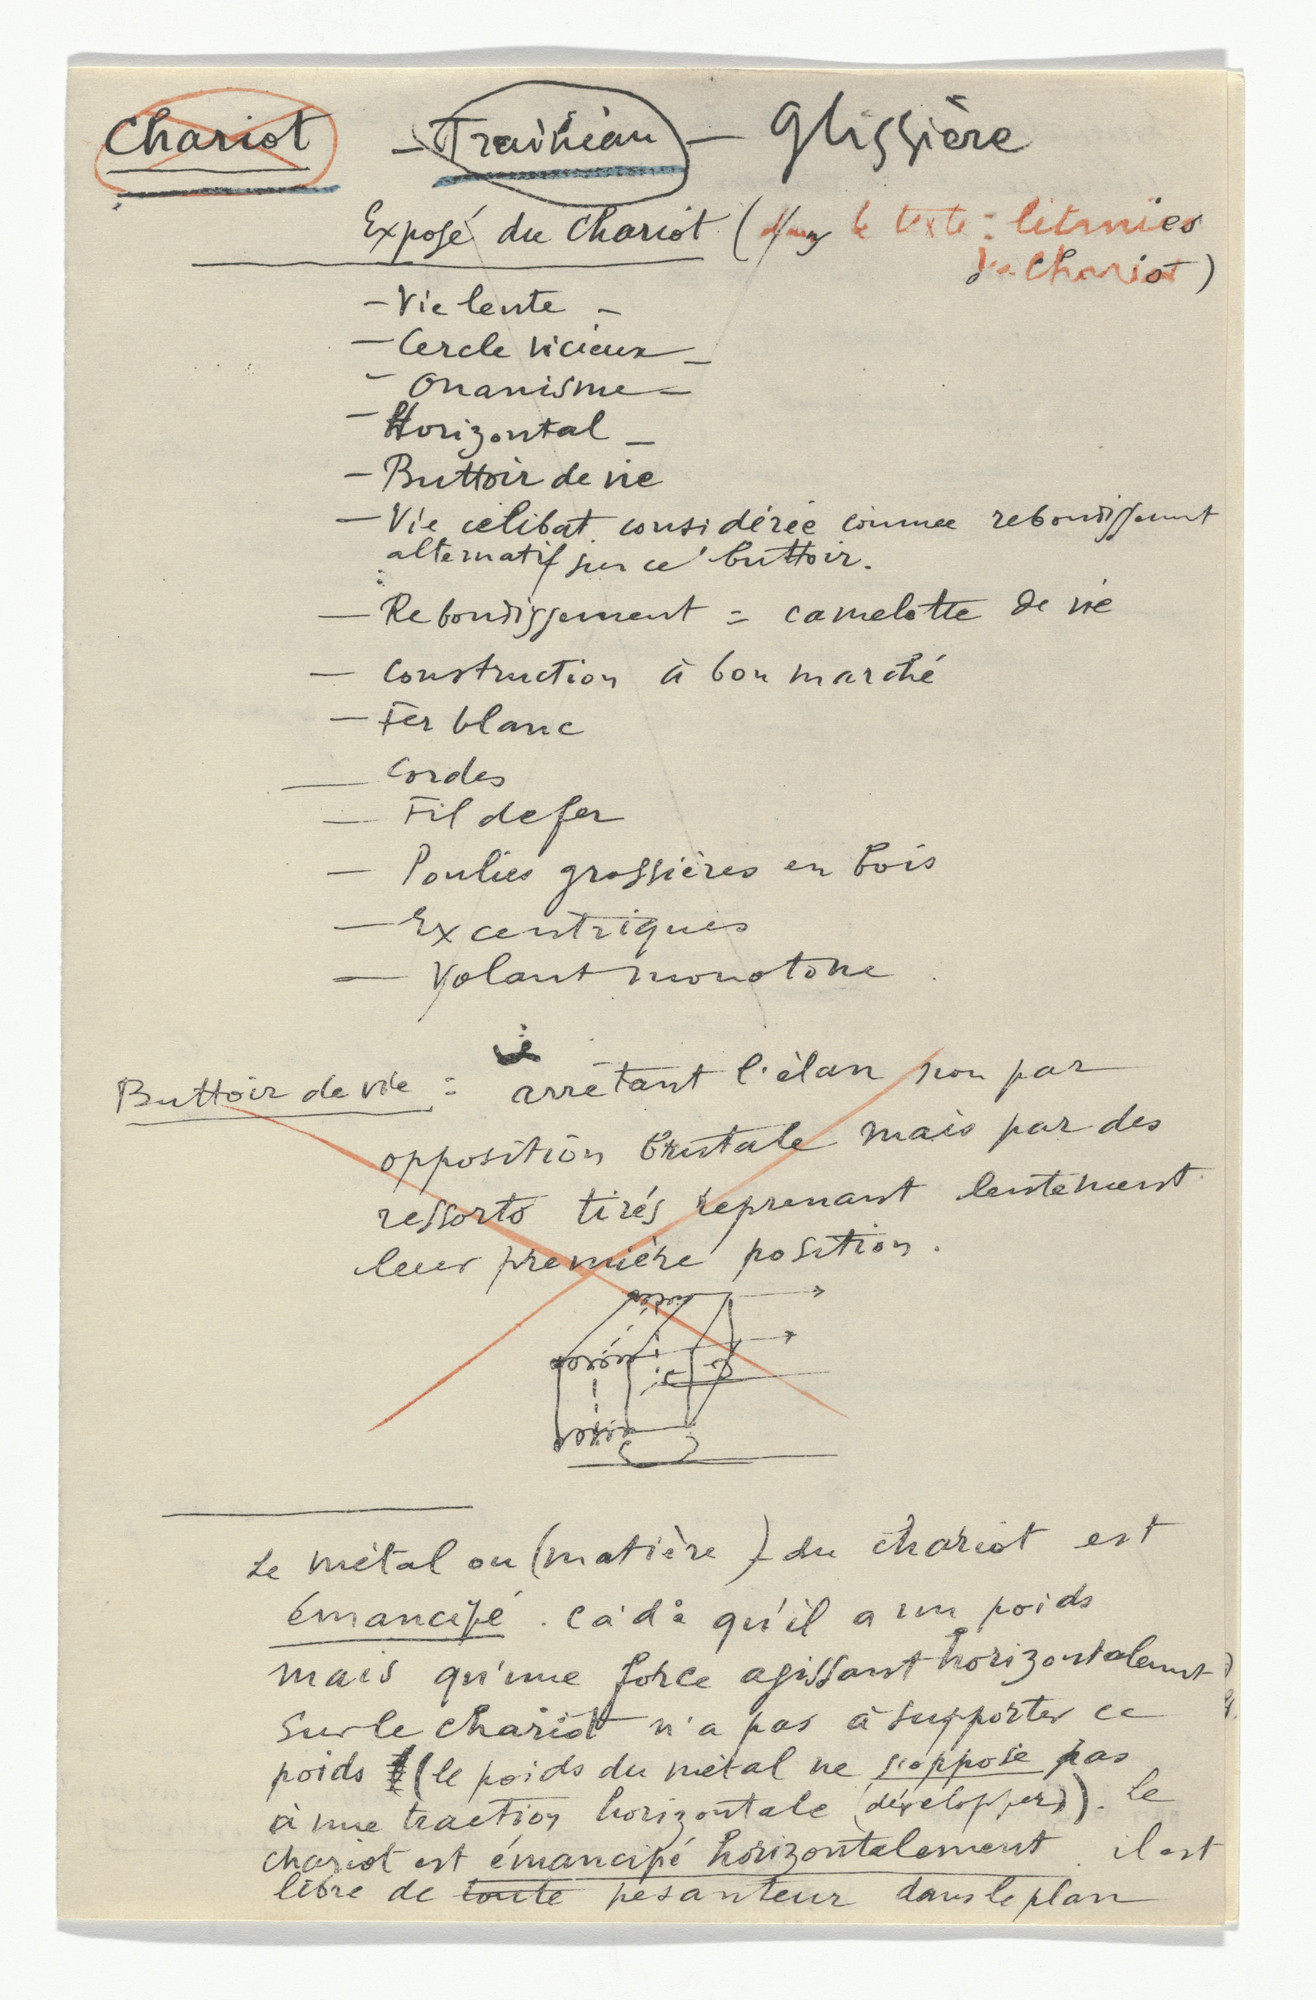 Chariot – Traîneau – Glissière
Exposé du Chariot (dans le texte : litanies
du Chariot)
– Vie lente –
– Cercle vicieux –
– Onanisme –
– Horizontal –
– Buttoir de vie
– Vie célibat considérée comme rebondissement
alternatif sur ce buttoir.
– Rebondissement = camelotte de vie
– Construction à bon marché
– Fer blanc
– Cordes
– Fil de fer
– Poulies grossières en bois
– Excentriques
– Volant monotone.
Buttoir de vie = arrêtant l'élan non par
opposition brutale mais par des
ressorts tirés reprenant lentement
leur première position.
Le métal ou (matière) du chariot est
émancipé. càd° qu'il a un poids
mais qu'une force agissant horizontalement
sur le chariot n'a pas à supporter ce
poids (le poids du métal ne s'oppose pas
à une traction horizontale (développer)). Le
chariot est émancipé horizontalement. il est
libre de toute pesanteur dans le plan